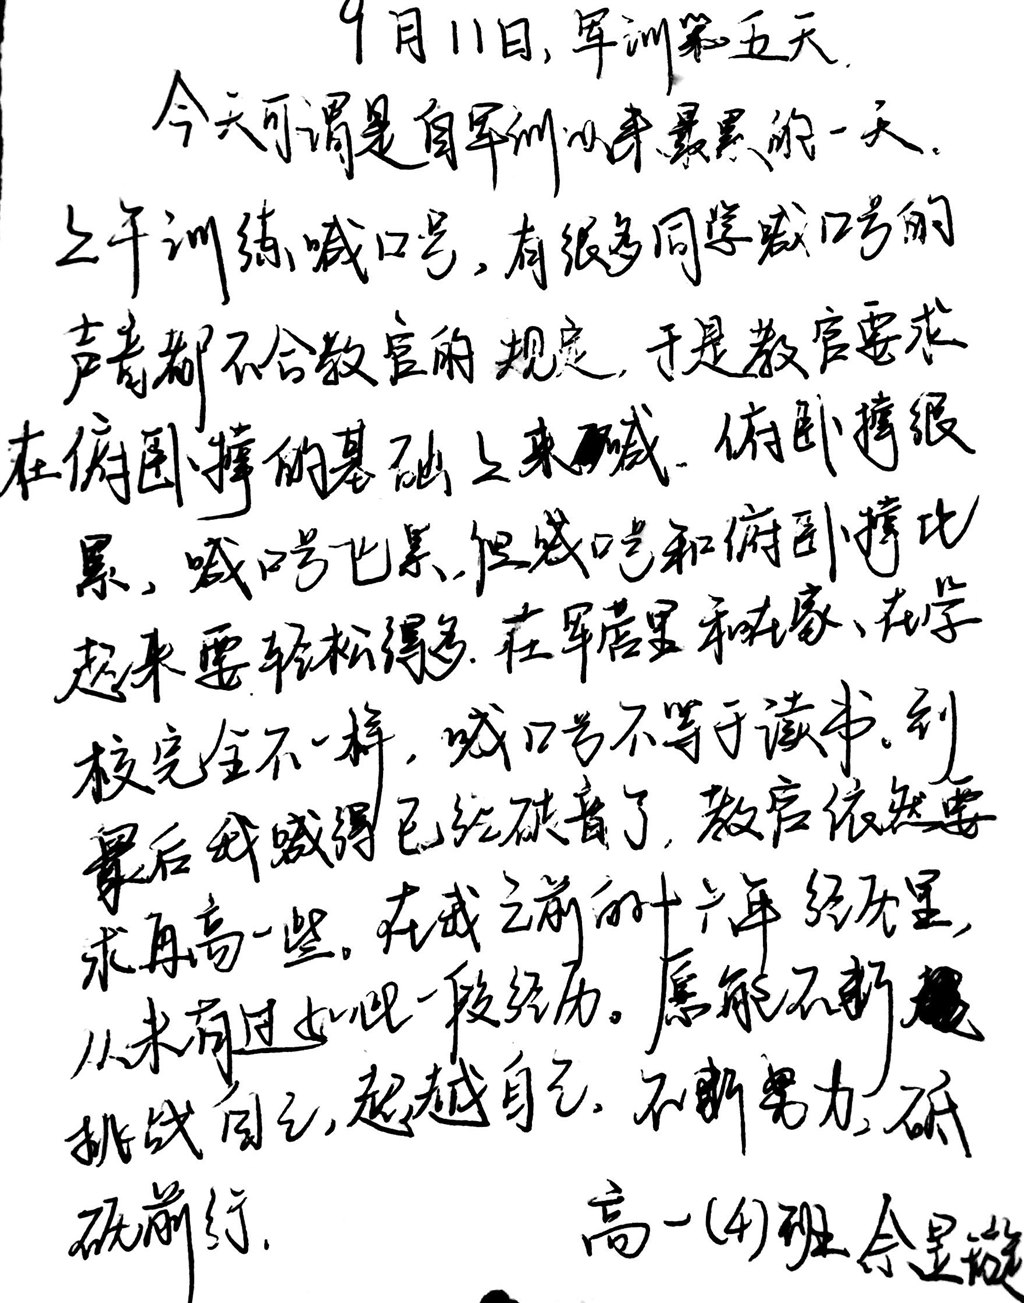 9月11日，军训第五天.
今天可谓是自军训以来最累的一天.
上午训练喊口号，有很多同学喊口号的
声音都不合教官的规定.于是教官要求
在俯卧撑的基础上来喊.俯卧撑很
累、喊口号也累,但喊口号和俯卧撑比
起来要轻松得多.在军营里和在家、在学
校完全不一样，喊口号不等于读书。到
最后我喊得已经破音了，教官依然要
求再高一些。在我之前的十六年经历里，
从未有过如此一段经历。愿能不断
挑战自己,超越自己.不断努力,砥
砺前行.
高一(4)班 佘昱